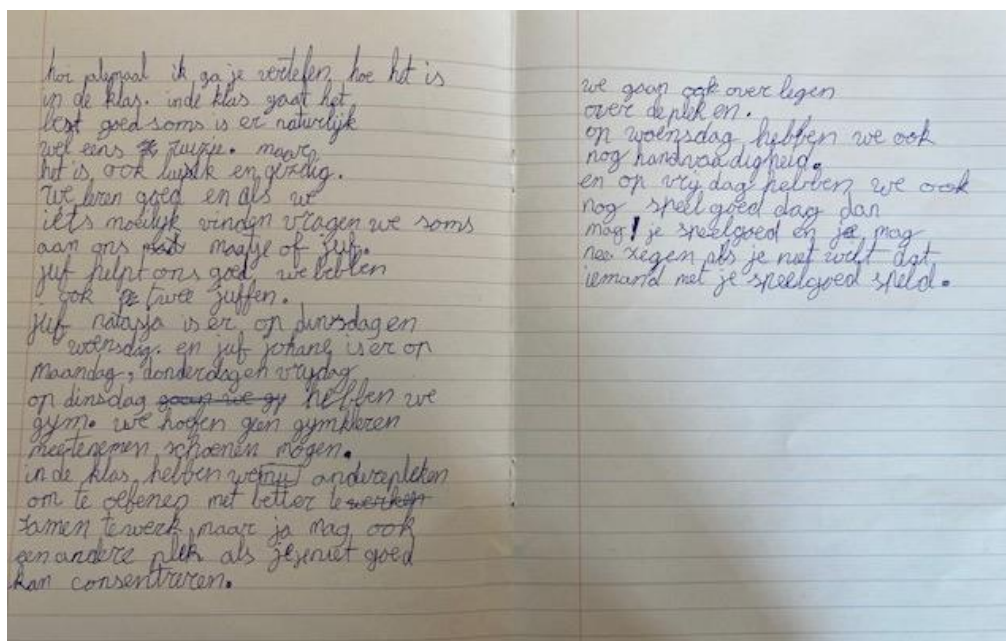 hoi alemaal ik ga je vertelen hoe het is
in de klas. inde klas gaat het
best goed soms is er naturlijk
wel eens ruizie. maar
het is ook leuk en gezelig.
We leren goed en als we
iets moeilijk vinden vragen we soms
aan ons maatje of juf.
juf helpt ons goed we hebben
ook twee juffen.
juf natasja is er op dinsdag en
woensdag. en juf johane is er op
maandag, donderdag en vrijdag
op dinsdag gaan we gy hebben we
gym. we hoefen geen gymkleren
meetenemen schoenen mogen.
in de klas hebben we nu andere pleken
om te oefenen met better te werken
samen tewerk maar je mag ook
een andere plek als je niet goed
kan consentreren.
we gaan ook over legen
over de plek en.
op woensdag hebben we ook
nog handvaadigheid.
en op vrij dag hebben we ook
nog speel goed dag dan
mag je speelgoed en je mag
nee zegen als je niet wilt dat
iemand met je speelgoed speld.